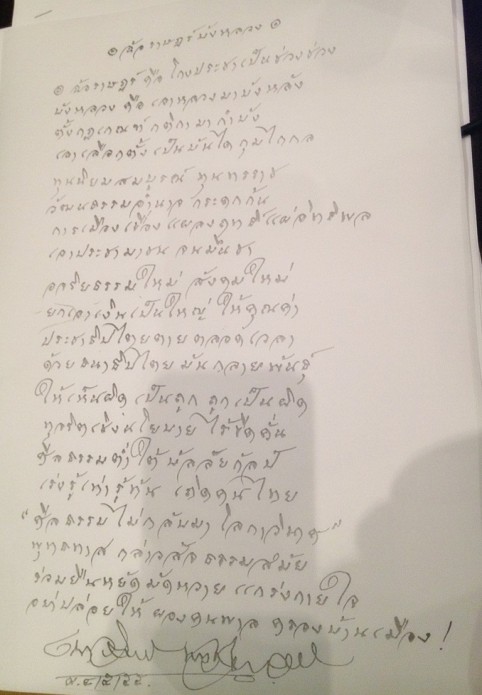 ๏ ฉ้อราษฎร์บังหลวง ๏
๏ ฉ้อราษฎร์ คือ โกงประชาเป็นช่วงช่วง
บังหลวง คือ เอาหลวงมาบังหลัง
ตั้งกฎเกณฑ์กติกามากำบัง
เอาเลือกตั้งเป็นบันไดกุมไกกล
ทุนนิยมสมบูรณ์ ทุน
วัฒนธรรมอำนาจ
การเมืองเรื่อง อิทธิพล
เอาประชาชน จนมึนชา
อริยธรรมใหม่ สังคมใหม่
ยกเอาเงินเป็นใหญ่ ให้คุณค่า
ประชาธิปไตยตายตลอดเวลา
ด้วยธนาธิปไตยมันกลายพันธุ์
ให้เห็นผิดเป็นถูก ถูกเป็นผิด
ทุจริตเชิงนโยบาย ไร้ขีดคั่น
ศีลธรรมต่ำใต้บัลลัยกัลป์
เร่งรู้เท่ารู้ทัน เถิดคนไทย
"ศีลธรรมไม่กลับมา โลกาวินาศ"
พุทธทาส กล่าวสัจธรรมสมัย
ร่วมยืนหยัดมัดหวาย แกร่งกายใจ
อย่าปล่อยให้ ผองคนพาล ครองบ้านเมือง!